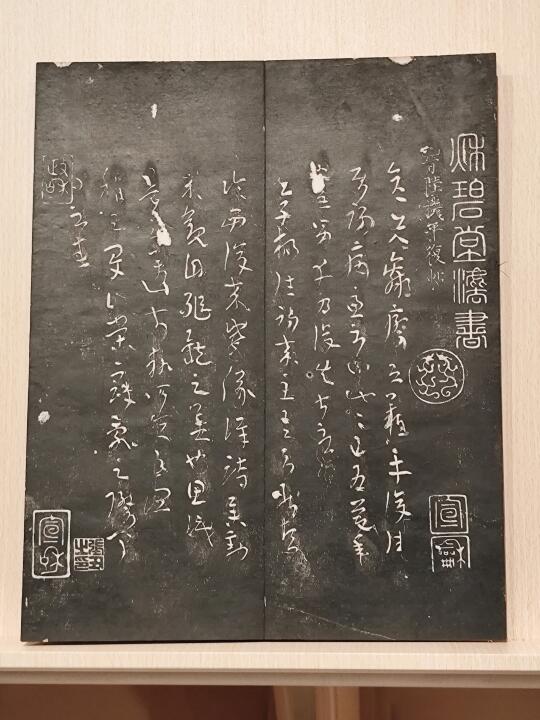 秌碧堂灋書
晉陸機平復帖
彦先羸瘵恐難平復往
屬初病慮不止此此已為慶承
使唯男幸為復失前憂耳
吳子楊往初來主吾不能盡
臨西復來威儀詳跱舉動
成觀自軀體之美也思識
量之邁前執所恆有宜
稱之夏伯榮寇亂之際聞
問不悉
宣龢
政龢
宣龢